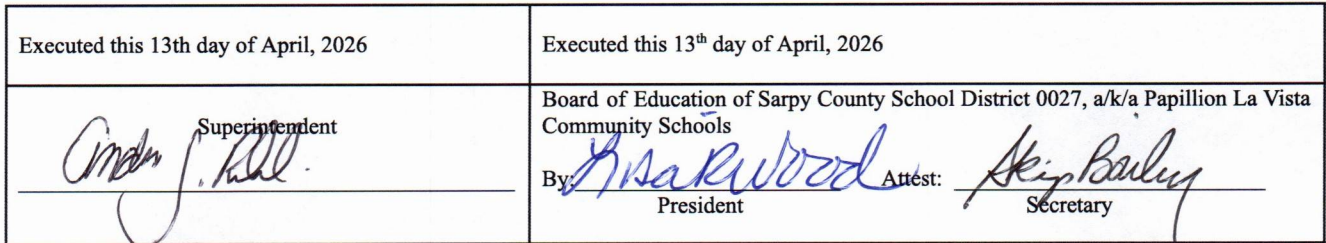 Executed this 13th day of April, 2026
Executed this 13th day of April, 2026
Superintendent
Board of Education of Sarpy County School District 0027, a/k/a Papillion La Vista
Community Schools
By: Lisa R Wood Attest: Skip Bailey
President Secretary